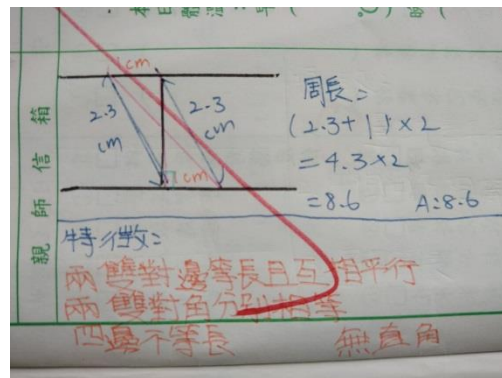 1cm
2.3
cm
2.3
cm
1cm
周長=
(2.3+1)×2
=4.3×2
=8.6 A:8.6
親師信箱
特徵:
兩雙對邊等長且互相平行
兩雙對角分別相等
四邊不等長 無直角